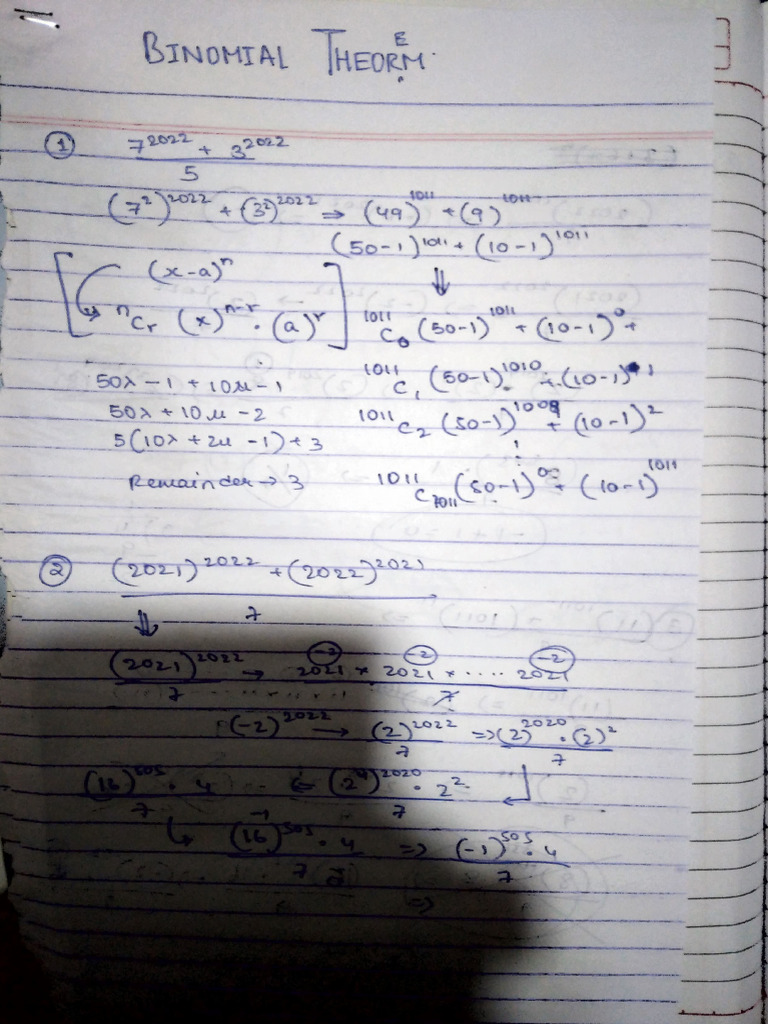 BINOMIAL THEOREM
① 7^2022 + 3^2022
5
(7²)^2022 + (3²)^2022 → (49)^1011 + (9)^1011
(50-1)^1011 + (10-1)^1011
⇓
[ (x-a)^n
→ ⁿCᵣ (x)^n-r · (a)^r ]
^1011 C₀ (50-1)^1011 + (10-1)^0 +
^1011 C₁ (50-1)^1010 + (10-1)^1
^1011 C₂ (50-1)^1009 + (10-1)^2
^1011 C_1011 (50-1)^0 + (10-1)^1011
50λ - 1 + 10μ - 1
50λ + 10μ - 2
5(10λ + 2μ - 1) + 3
Remainder → 3
② (2021)^2022 + (2022)^2021
7
⇓
(2021)^2022 / 7 → 2021 × 2021 × ..... 2021 / 7
(-2) (-2) (-2)
(-2)^2022 → (2)^2022 / 7 ⇒ (2)^2020 · (2)^2 / 7
(16)^505 · 4 / 7 ⇐ (2^4)^2020 · 2^2 / 7
(16)^505 · 4 / 7 ⇒ (-1)^505 · 4 / 7
⇒